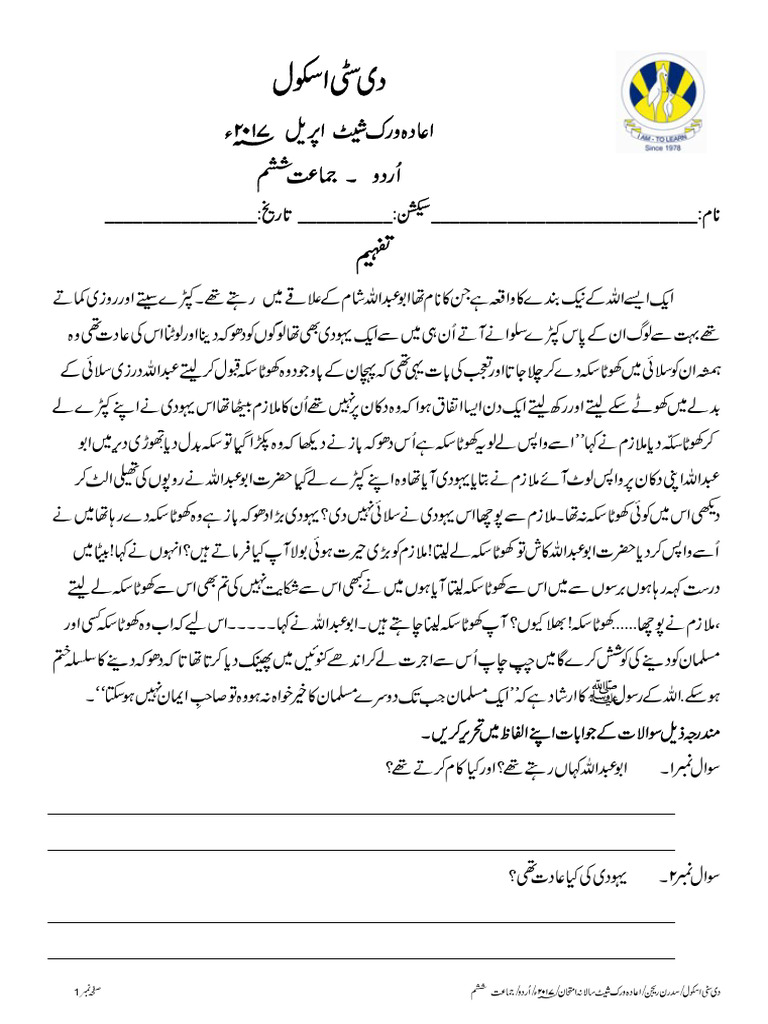 دی سٹی اسکول
I AM - TO LEARN
Since 1978
اعادہ ورک شیٹ اپریل ۲۰۱۷ء
اُردو ۔ جماعت ششم
نام:____________________________سیکشن:__________ تاریخ:________________
تفہیم
ایک ایسے اللہ کے نیک بندے کا واقعہ ہے جن کا نام تھا ابو عبداللہ شام کے علاقے میں رہتے تھے۔ کپڑے سیتے اور روزی کماتے
تھے بہت سے لوگ ان کے پاس کپڑے سلوانے آتے اُن ہی میں سے ایک یہودی بھی تھا لوگوں کو دھوکہ دینا اور لوٹنا اس کی عادت تھی وہ
ہمشہ ان کو سلائی میں کھوٹا سکہ دے کر چلا جاتا اور تعجب کی بات یہی تھی کہ پہچان کے باوجود وہ کھوٹا سکہ قبول کر لیتے عبداللہ درزی سلائی کے
بدلے میں کھوٹے سکے لیتے اور رکھ لیتے ایک دن ایسا اتفاق ہوا کہ وہ دکان پر نہیں تھے اُن کا ملازم بیٹھا تھا اس یہودی نے اپنے کپڑے لے
کر کھوٹا سکّہ دیا ملازم نے کہا’’اسے واپس لے لو یہ کھوٹا سکہ ہے اُس دھوکہ باز نے دیکھا کہ وہ پکڑا گیا تو سکہ بدل دیا تھوڑی دیر میں ابو
عبداللہ اپنی دکان پر واپس لوٹ آئے ملازم نے بتایا یہودی آیا تھا وہ اپنے کپڑے لے گیا حضرت ابو عبداللہ نے روپوں کی تھیلی الٹ کر
دیکھی اس میں کوئی کھوٹا سکہ نہ تھا۔ ملازم سے پوچھا اس یہودی نے سلائی نہیں دی؟ یہودی بڑا دھوکہ باز ہے وہ کھوٹا سکہ دے رہا تھا میں نے
اُسے واپس کر دیا حضرت ابو عبداللہ کاش تو کھوٹا سکہ لے لیتا! ملازم کو بڑی حیرت ہوئی بولا آپ کیا فرماتے ہیں؟ انہوں نے کہا! بیٹا میں
درست کہہ رہا ہوں برسوں سے میں اس سے کھوٹا سکہ لیتا آیا ہوں میں نے کبھی اس سے شکایت نہیں کی تم بھی اس سے کھوٹا سکہ لے لیتے
،ملازم نے پوچھا......کھوٹا سکہ! بھلا کیوں؟ آپ کھوٹا سکہ لینا چاہتے ہیں۔ ابو عبداللہ نے کہا۔۔۔۔۔اس لیے کہ اب وہ کھوٹا سکہ کسی اور
مسلمان کو دینے کی کوشش کرے گا میں چپ چاپ اُس سے اجرت لے کر اندھے کنوئیں میں پھینک دیا کرتا تھا تا کہ دھوکہ دینے کا سلسلہ ختم
ہو سکے۔اللہ کے رسول ﷺ کا ارشاد ہے کہ’’ایک مسلمان جب تک دوسرے مسلمان کا خیر خواہ نہ ہو وہ تو صاحبِ ایمان نہیں ہو سکتا‘‘۔
مندرجہ ذیل سوالات کے جوابات اپنے الفاظ میں تحریر کریں۔
سوال نمبر۱۔ ابو عبداللہ کہاں رہتے تھے؟ اور کیا کام کرتے تھے؟
سوال نمبر۲۔ یہودی کی کیا عادت تھی؟
دی سٹی اسکول/سدرن ریجن/اعادہ ورک شیٹ سالانہ امتحان/۲۰۱۷ء/اُردو/جماعت ششم
صفحہ نمبر1